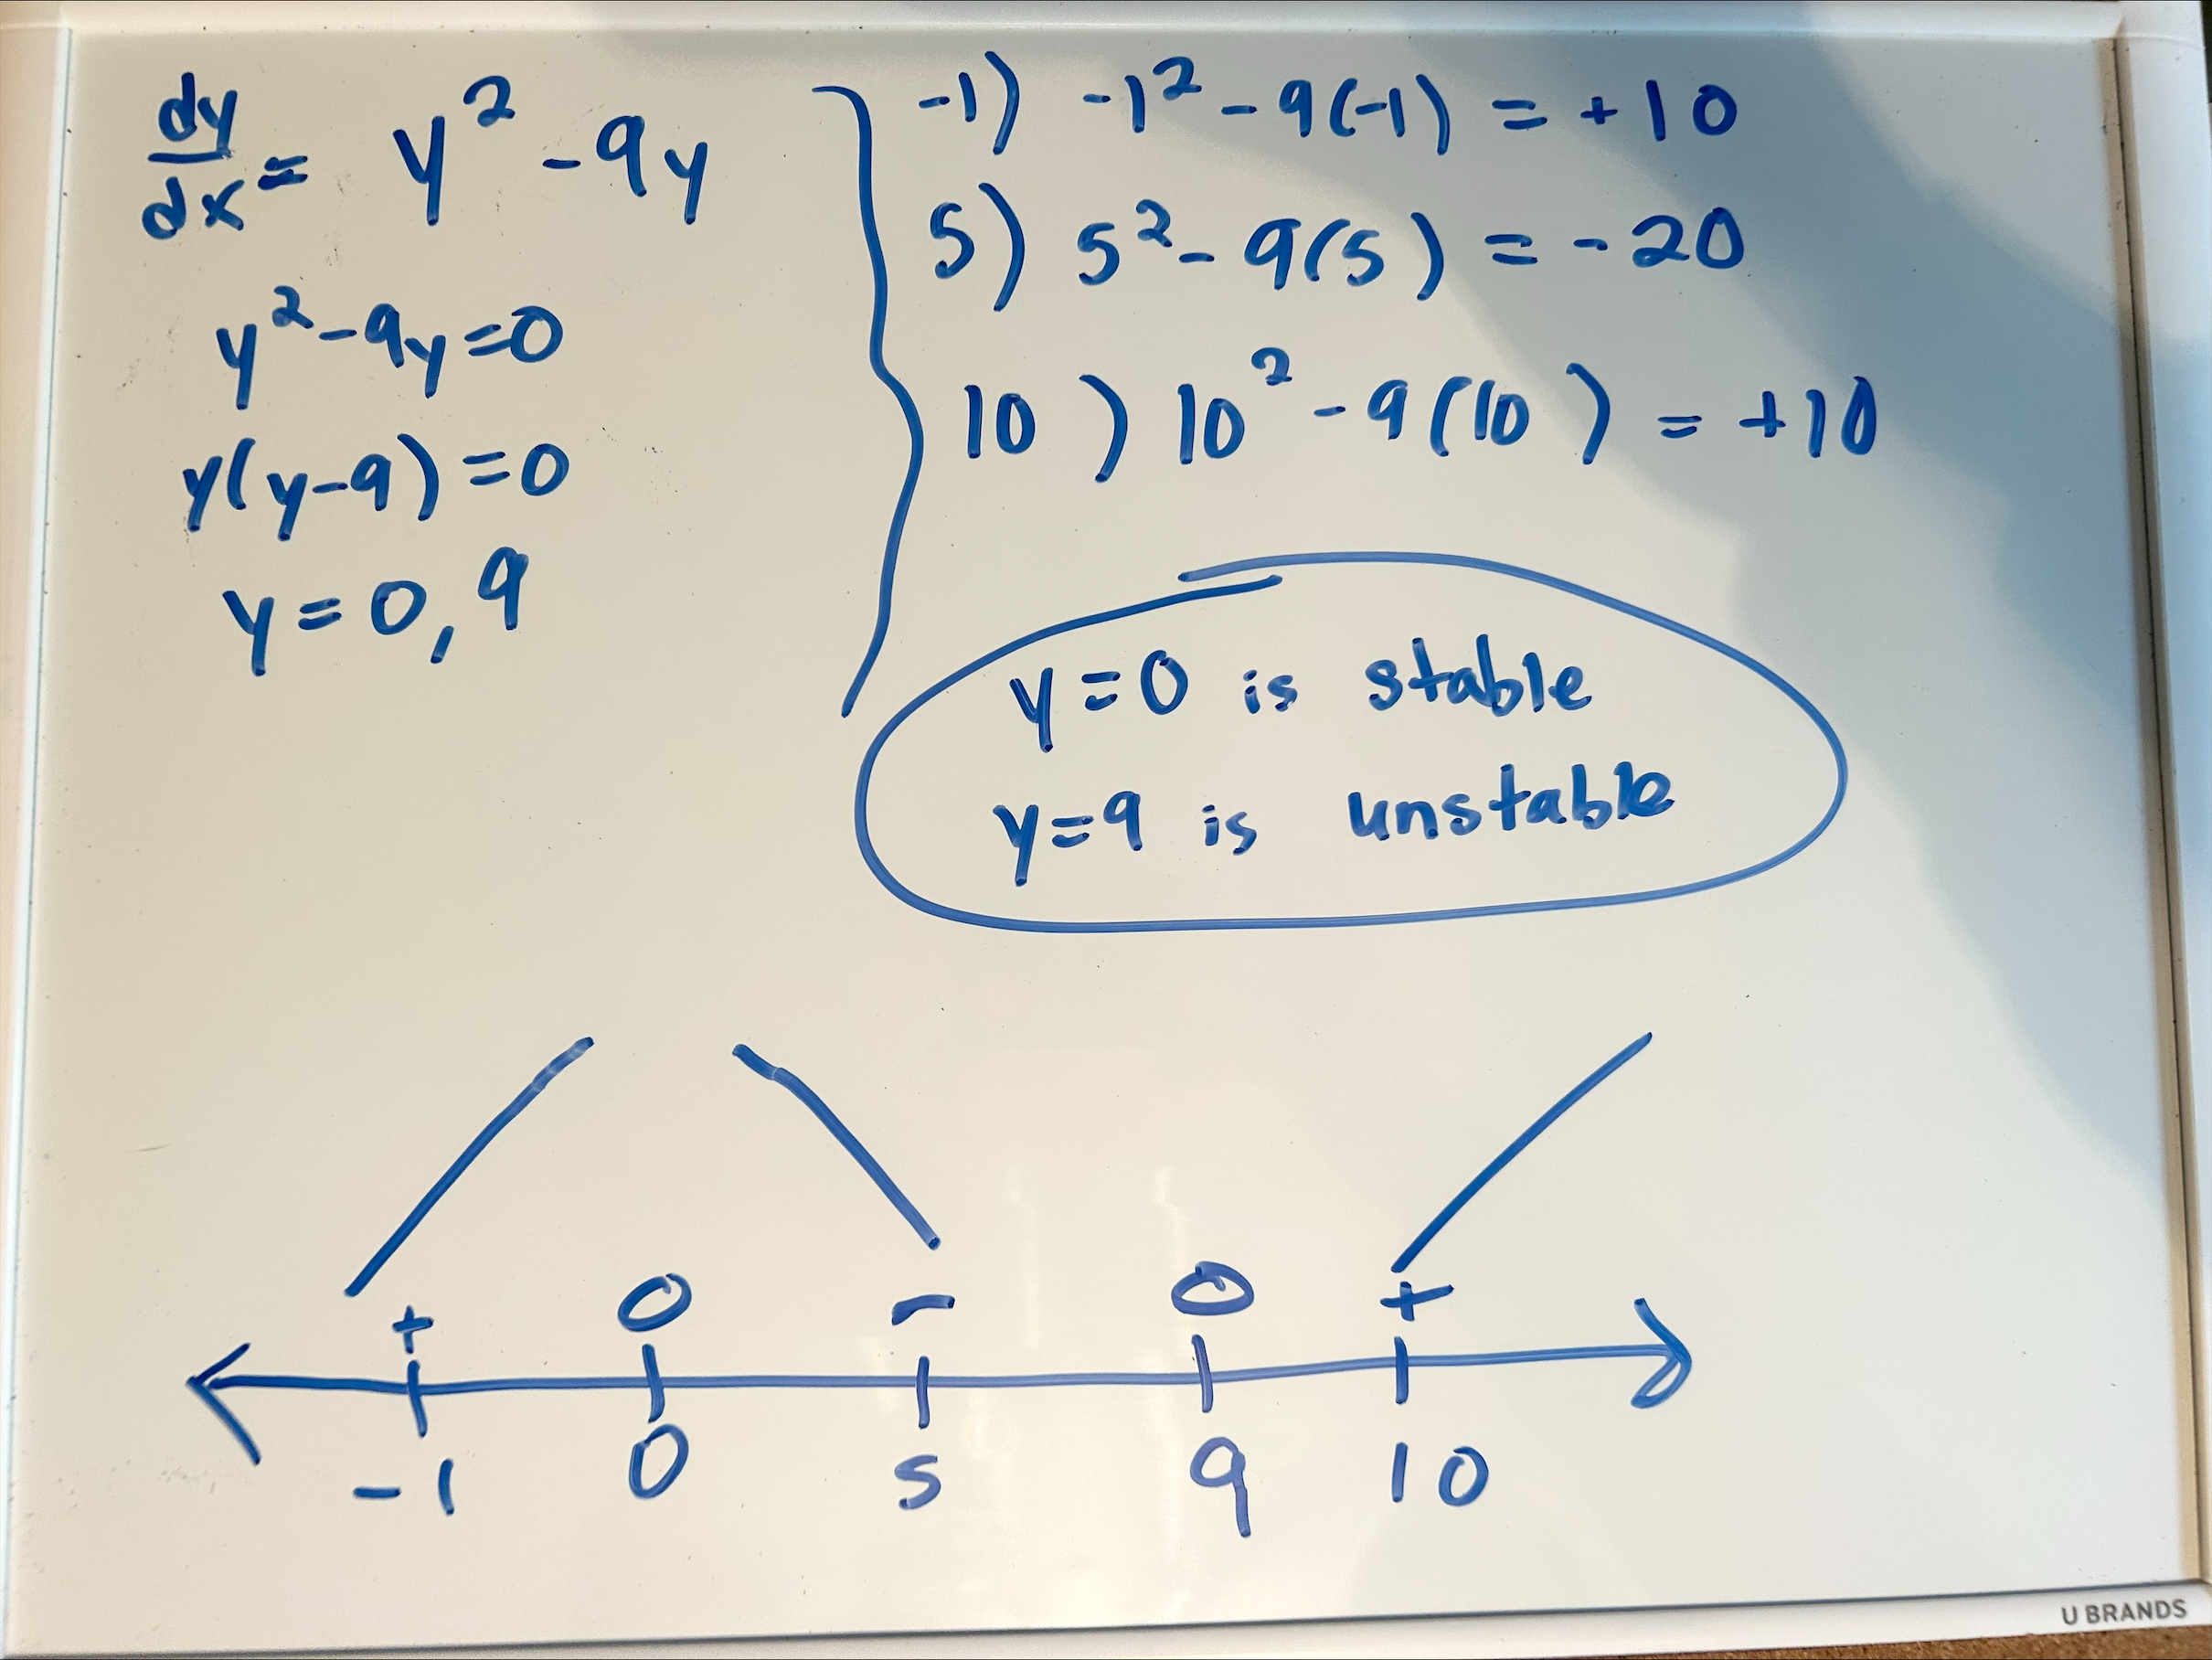 dy/dx = y² - 9y
y² - 9y = 0
y(y-9) = 0
y = 0, 9
-1) -1² - 9(-1) = +10
5) 5² - 9(5) = -20
10) 10² - 9(10) = +10
y = 0 is stable
y = 9 is unstable
+ 0 - 0 +
-1 0 5 9 10
U BRANDS